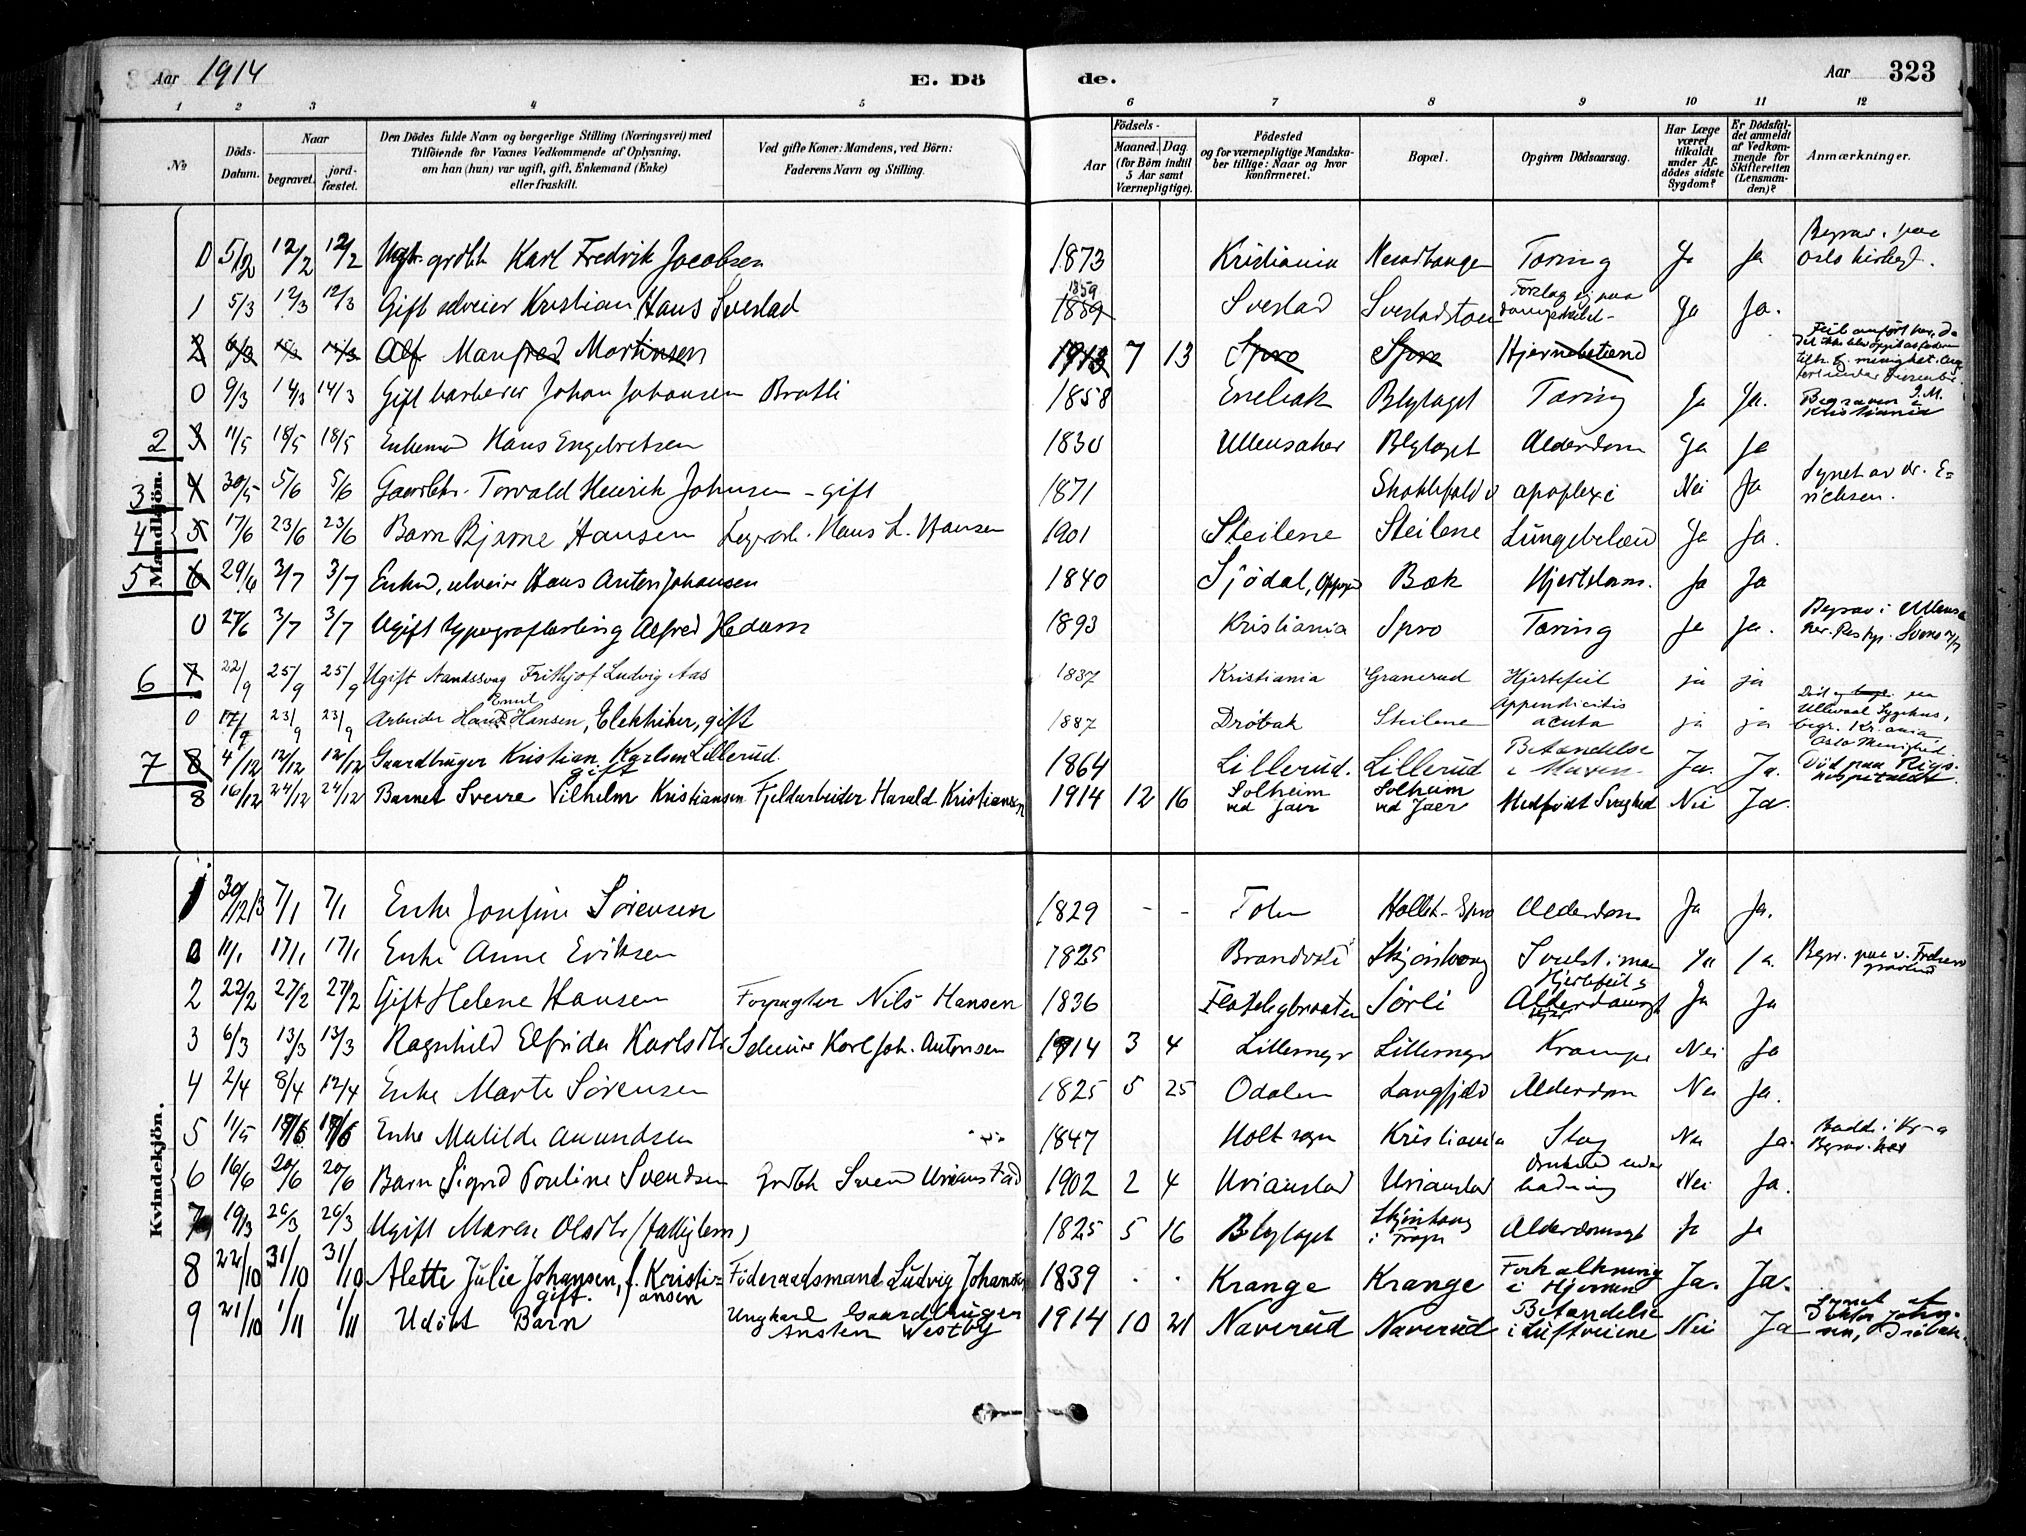 Aar 1914 E. Dö
de. Aar 323
1 2 3 4 5 6 7 8 9 10 11 12
№
Döds-Datum.
Naar
begravet.
jordfæstet.
Den Dödes fulde Navn og borgerlige Stilling (Næringsvei) med
Tilföiende for Voxnes Vedkommende af Oplysning,
om han (hun) var ugift, gift, Enkemand (Enke)
eller fraskilt.
Ved gifte Koner: Mandens, ved Börn:
Faderens Navn og Stilling.
Födsels-
Aar
Maaned. Dag
(for Börn indtil
5 Aar samt
Værnepligtige).
Födested
og for værnepligtige Mandska-
ber tillige: Naar og hvor
konfirmeret.
Bopæl.
Opgiven Dödsaarsag.
Har Læge
været
tilkaldt
under Af-
dödes sidste
Sygdom?
Er Dödsfal-
det anmeldt
af Vedkom-
mende for
Skifteretten
(Lensman-
den)?
Anmærkninger.
Mandkjön.
0 5/2 12/2 12/2 Ugift grdbr. Karl Fredrik Jacobsen 1873 Kristiania Nesodtangen Tæring Ja Ja Begrav. paa Oslo kirkeg.
1 5/3 12/3 12/3 Gift selveier Kristian Hans Svestad 1859 Svestad Ja Ja.
2 Alf Manfred Martinsen 1913 7 13 Spro Spro Hjernebetænd
0 9/3 14/3 14/3 Gift barberer Johan Johansen Bratli 1858 Enebak Blylaget Tæring Ja Ja. Begraven i Kristiania
2 3 11/5 18/5 18/5 Enkem. Hans Engebretsen 1830 Ullensaker Blylaget Alderdom Ja Ja
3 4 30/5 5/6 5/6 Torvald Henrik Johnsen - gift 1871 apoplexi Nei Ja Synet av dr. Erichsen.
4 5 17/6 23/6 23/6 Barn Bjarne Hansen Hans L. Hansen 1901 Steilene Steilene Lungebetænd Ja Ja.
5 6 29/6 3/7 3/7 Enkem, selveier Hans Anton Johansen 1840 Sjödal, Oppegd Bæk Ja Ja
0 27/6 3/7 3/7 Ugift typograflærling Alfred Hedum 1893 Kristiania Spro Tæring Ja Ja. Begrav i Ullensaker.
6 7 22/9 25/9 25/9 Ugift Aandssvag Frithjof Ludvig Aas 1887 Kristiania Granerud Hjertefeil ja ja
0 17/9 23/9 23/9 Arbeider Hans Emil Hansen, Elektriker, gift 1887 Dröbak Steilene Appendicitis acuta ja ja Ullevaal Sygehus, begr. Kr.ania Oslo Menighed.
7 8 4/12 12/12 12/12 Gaardbruger Kristian Karlsen Lillerud. gift 1864 Lillerud. Lillerud Betændelse i Maven Ja. Ja. Död paa Rigshospitalet.
8 16/12 24/12 24/12 Barnet Sverre Vilhelm Kristiansen Fjeldarbeider Harald Kristiansen 1914 12 16 Solheim ved Jaer Solheim ved Jaer Medfödt Svaghed Nei Ja.
Kvindekjön.
1 30/12 13 7/1 7/1 Enke Josefine Sörensen 1829 - - Toten Hollet - Spro Alderdom Ja Ja.
0 11/1 17/1 17/1 Enke Anne Eriksen 1825 Ja Ja.
2 22/2 27/2 27/2 Gift Helene Hansen Forpagter Nils Hansen 1836 Sörli Hjertefeil Ja Ja
3 6/3 13/3 13/3 Ragnhild Elfrida Karlsdtr Selveier Karl Joh. Antonsen 1914 3 4 Lillemyr Lillemyr Krampe Nei Ja
4 2/4 8/4 12/4 Enke Marte Sörensen 1825 5 25 Odalen Langfjeld Alderdom Nei Ja.
5 11/5 18/5 18/5 Enke Matilde Amundsen 1847 Holt sogn Kristiania Slag Nei Ja. Begrav. her
6 16/6 20/6 20/6 Barn Sigrid Pauline Svendsen Grdbr Svend Urianstad 1902 2 4 Urianstad Urianstad Druknede under badning Nei Ja.
7 19/3 26/3 26/3 Ugift Maren Olsdtr (fattiglem) 1825 5 16 Blylaget Alderdomsgt Ja Ja
8 22/10 31/10 31/10 Alette Julie Johansen, f. Kristiansen gift. Föderaadsmand Ludvig Johansen 1839 . . Krange Krange Forkalkning i Hjernen Ja. Ja.
9 21/10 1/11 1/11 Udöbt Barn Ungkarl Gaardbruger Westby 1914 10 21 Naverud Naverud Betændelse i Luftveiene Nei Ja Synet af Doktor Johnsen, Dröbak.